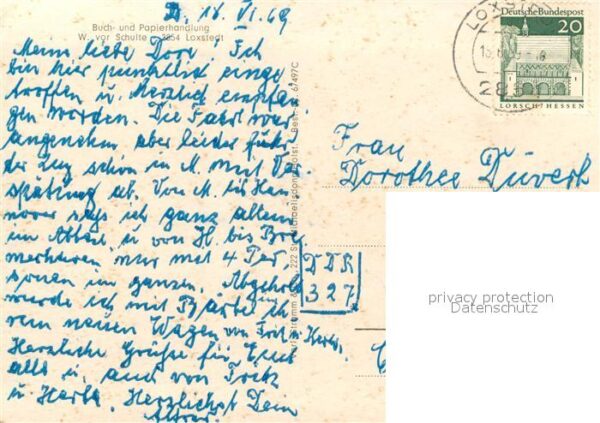 D. 18. VI. 69
Buch- und Papierhandlung
W. vor Schulte - 2854 Loxstedt
Meine liebe Dore! Ich
bin hier pünktlich einge
troffen u. herzlich empfan
gen worden. Die Fahrt war
angenehm, aber leider fuhr
der Zug schon in M. mit Ver
spätung ab. Von M. bis Han
nover saß ich ganz allein
im Abteil u. von H. bis Bre
merhaven nur mit 4 Per
sonen im ganzen. Abgeholt
wurde ich mit
neuen Wagen von Fritz u. Herta.
Herzliche Grüße für Euch
alle u. auch von Fritz
u. Herta. Herzlichst Dein
Best. Nr. 67497C
Deutsche Bundespost
20
LORSCH/HESSEN
LOXSTEDT
Frau
Dorothee
DDR
327
privacy protection
Datenschutz